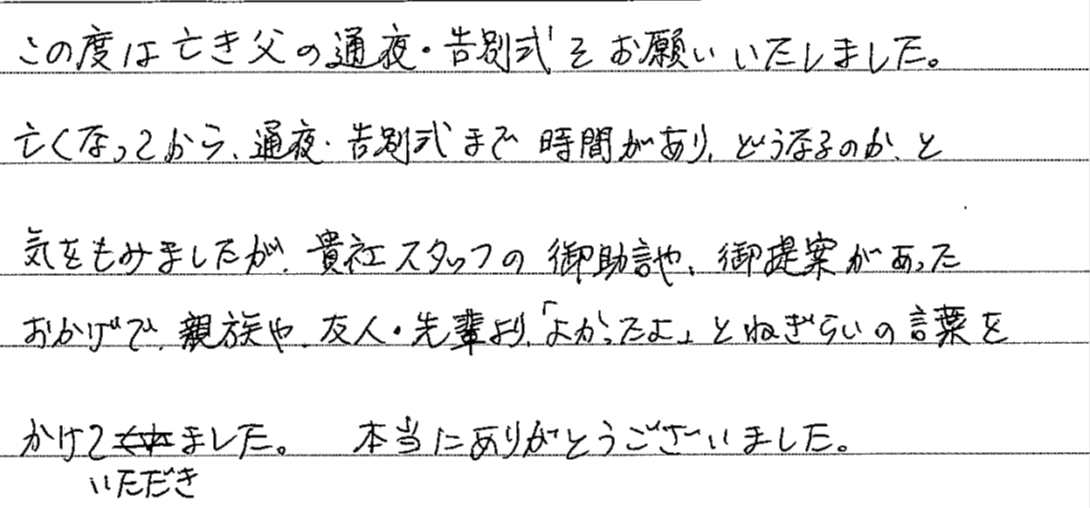 この度は亡き父の通夜・告別式をお願いいたしました。
亡くなってから、通夜・告別式まで時間があり、どうなるのか、と
気をもみましたが、貴社スタッフの御助言や、御提案があった
おかげで、親族や、友人・先輩より、「よかったよ」とねぎらいの言葉を
かけてくれました。 本当にありがとうございました。
いただき